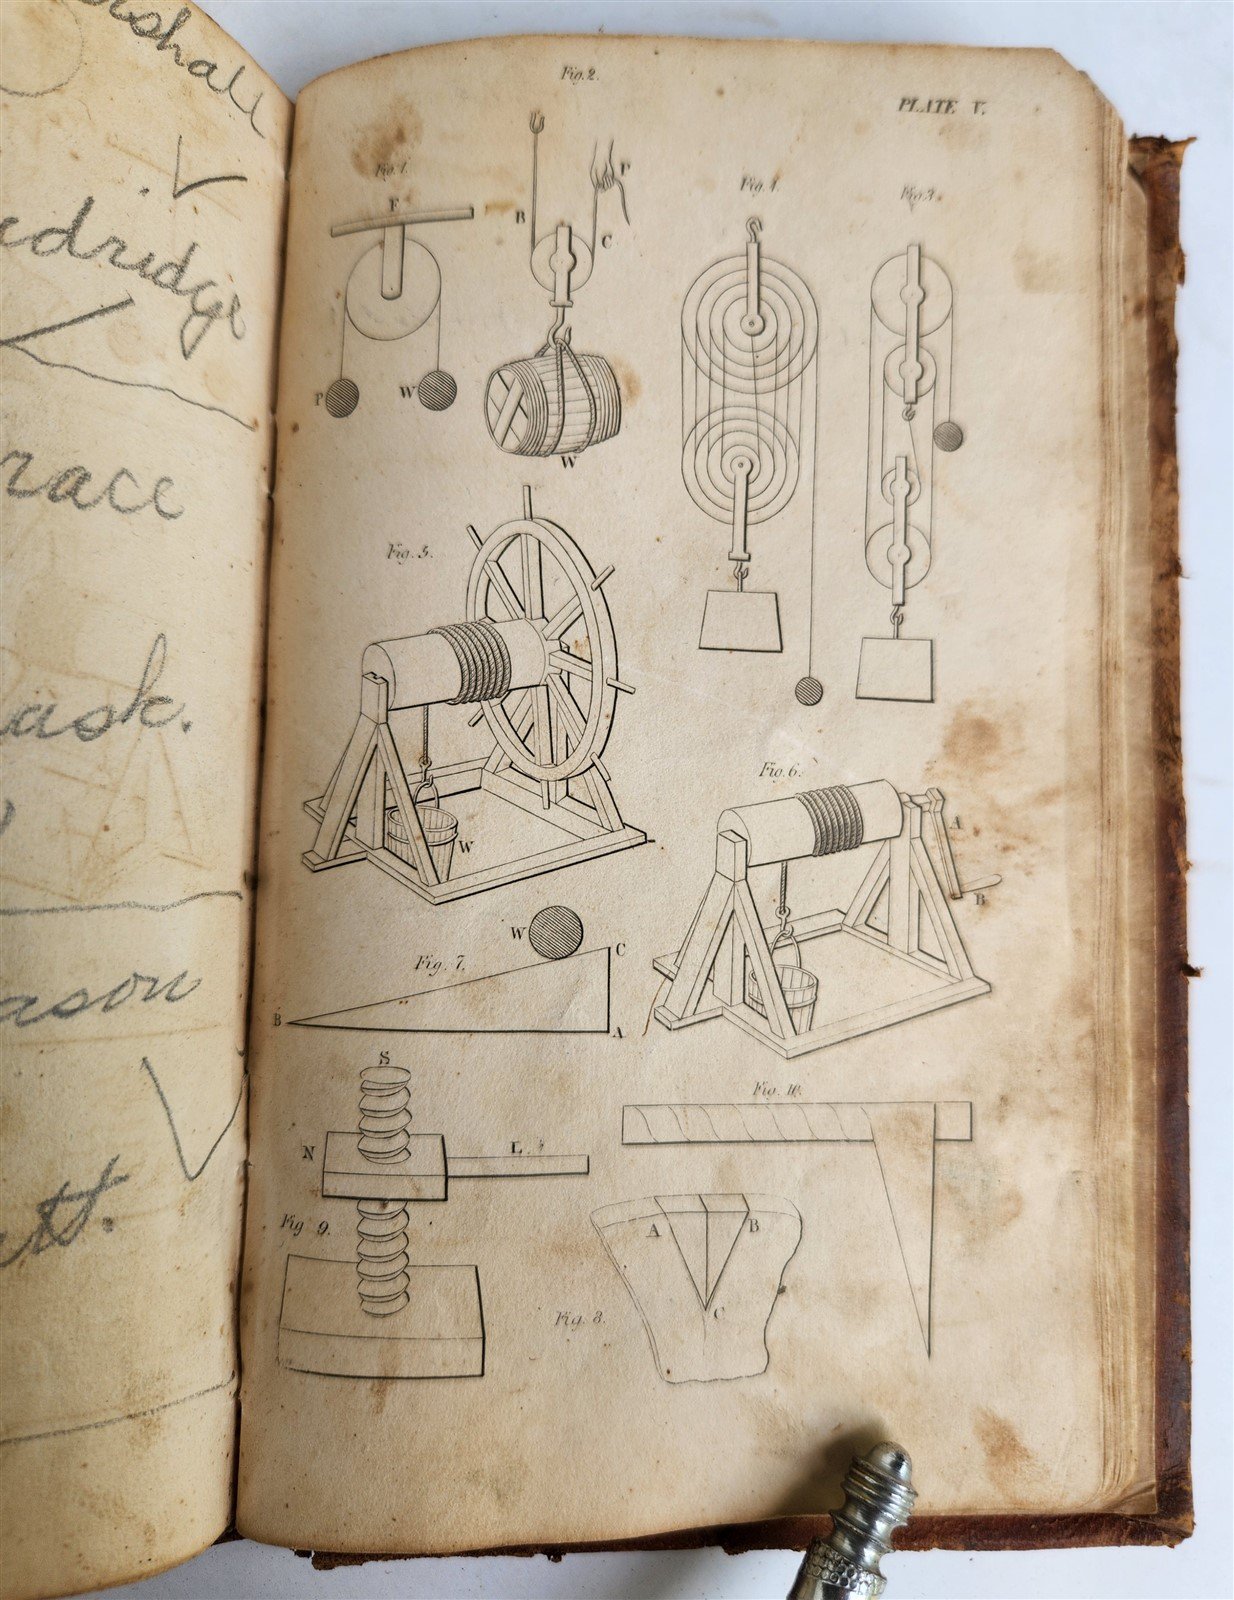 dridge
race
ask.
ason
tt.
Fig. 2.
PLATE V.
Fig. 1.
F
P
W
B
C
P
W
Fig. 4.
Fig. 3.
Fig. 5.
W
Fig. 6.
A
B
Fig. 7.
W
C
B
A
S
N
L
Fig 9.
Fig. 10.
A
B
C
Fig. 8.